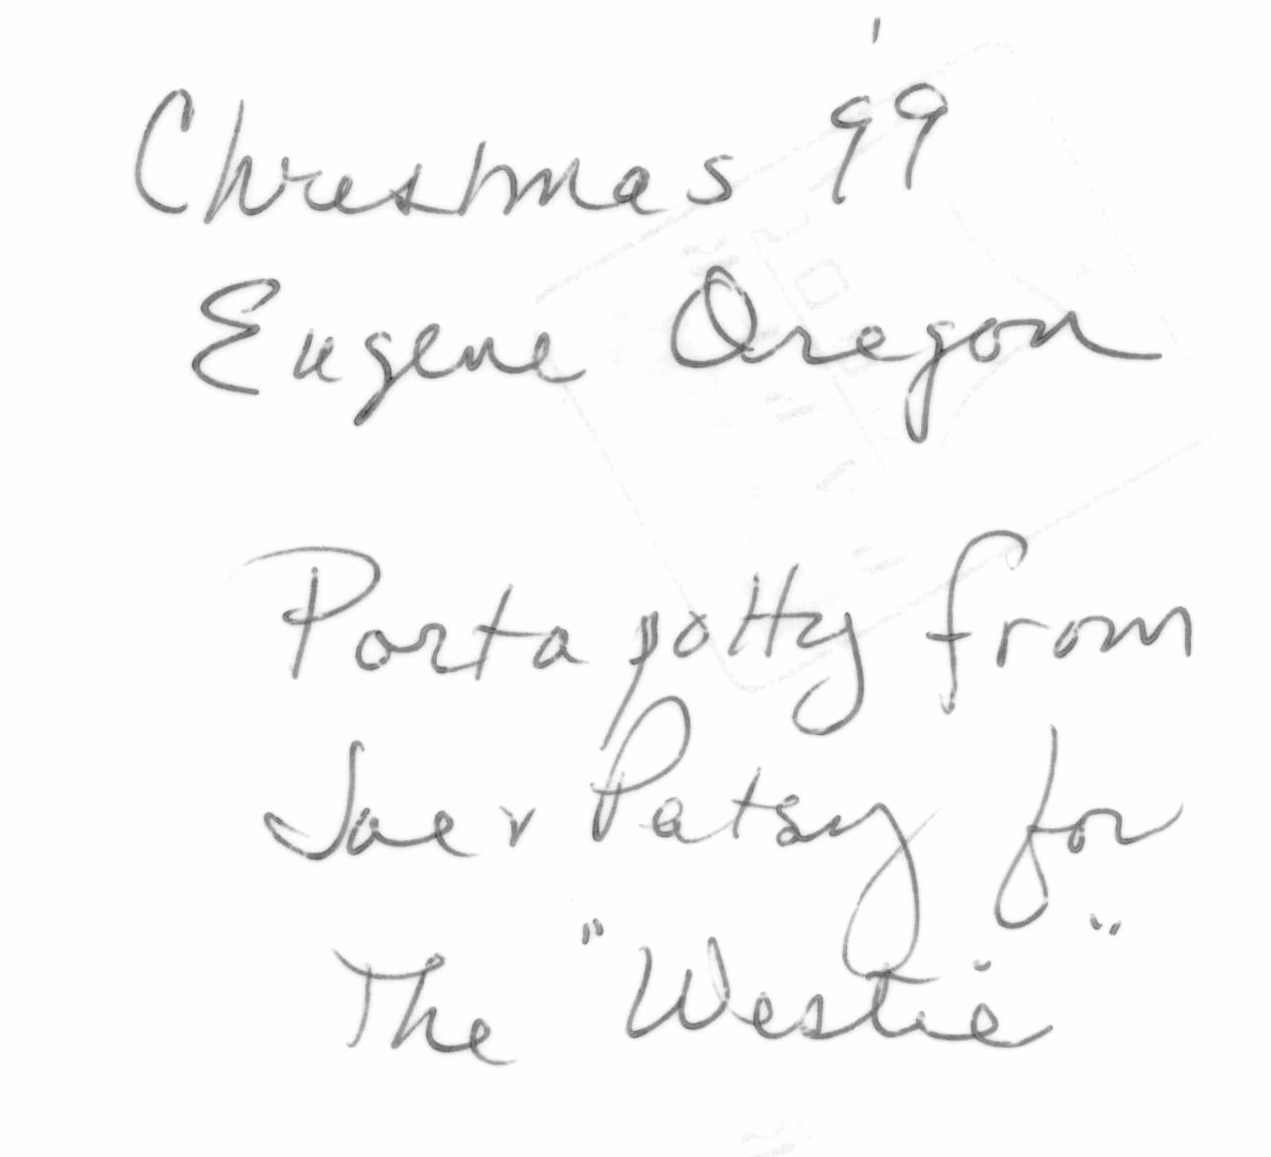 Christmas '99
Eugene Oregon
Porta potty from
Joe + Patsy for
The "Westie"